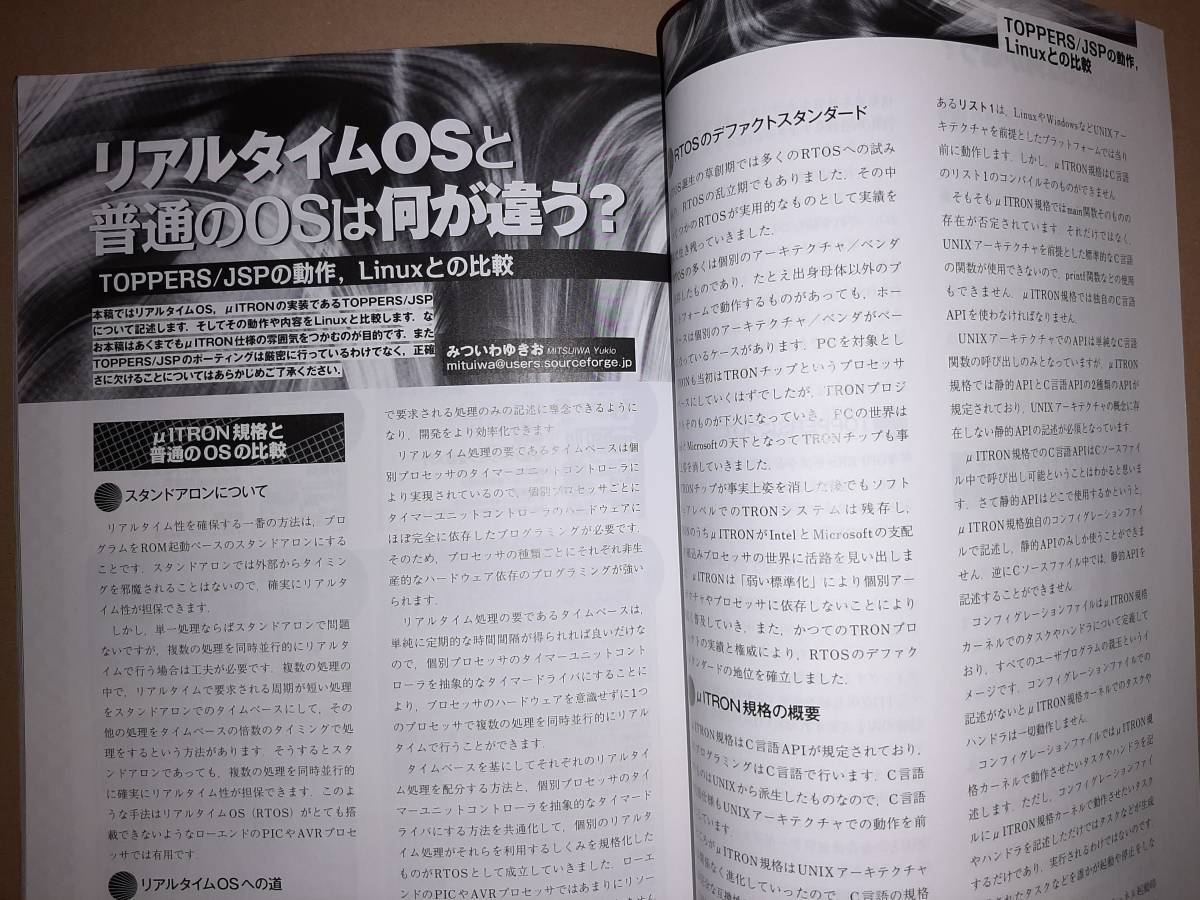 リアルタイムOSと
普通のOSは何が違う?
TOPPERS/JSPの動作,Linuxとの比較
本稿ではリアルタイムOS,μITRONの実装であるTOPPERS/JSP
について記述します.そしてその動作や内容をLinuxと比較します.な
お本稿はあくまでもμITRON仕様の雰囲気をつかむのが目的です.また
TOPPERS/JSPのポーティングは厳密に行っているわけでなく,正確
さに欠けることについてはあらかじめご了承ください.
みついわゆきお MITSUIWA Yukio
mituiwa@users.sourceforge.jp
μITRON規格と
普通のOSの比較
スタンドアロンについて
リアルタイム性を確保する一番の方法は,プロ
グラムをROM起動ベースのスタンドアロンにする
ことです.スタンドアロンでは外部からタイミン
グを邪魔されることはないので,確実にリアルタ
イム性が担保できます.
しかし,単一処理ならばスタンドアロンで問題
ないですが,複数の処理を同時並行的にリアルタ
イムで行う場合は工夫が必要です.複数の処理の
中で,リアルタイムで要求される周期が短い処理
をスタンドアロンでのタイムベースにして,その
他の処理をタイムベースの倍数のタイミングで処
理をするという方法があります.そうするとスタ
ンドアロンであっても,複数の処理を同時並行的
に確実にリアルタイム性が担保できます.このよ
うな手法はリアルタイムOS(RTOS)がとても搭
載できないようなローエンドのPICやAVRプロセ
ッサでは有用です.
リアルタイムOSへの道
で要求される処理のみの記述に専念できるように
なり,開発をより効率化できます.
リアルタイム処理の要であるタイムベースは個
別プロセッサのタイマーユニットコントローラに
より実現されているので,個別プロセッサごとに
タイマーユニットコントローラのハードウェアに
ほぼ完全に依存したプログラミングが必要です.
そのため,プロセッサの種類ごとにそれぞれ非生
産的なハードウェア依存のプログラミングが強い
られます.
リアルタイム処理の要であるタイムベースは,
単純に定期的な時間間隔が得られれば良いだけな
ので,個別プロセッサのタイマーユニットコント
ローラを抽象的なタイマードライバにすることに
より,プロセッサのハードウェアを意識せずに1つ
のプロセッサで複数の処理を同時並行的にリアル
タイムで行うことができます.
タイムベースを基にしてそれぞれのリアルタイ
ム処理を配分する方法と,個別プロセッサのタイ
マーユニットコントローラを抽象的なタイマード
ライバにする方法を共通化して,個別のリアルタ
イム処理がそれらを利用するしくみを規格化した
ものがRTOSとして成立していきました.ローエ
ンドのPICやAVRプロセッサではあまりにリソー
TOPPERS/JSPの動作,
Linuxとの比較
RTOSのデファクトスタンダード
OS誕生の草創期では多くのRTOSへの試み
RTOSの乱立期でもありました.その中
くつかのRTOSが実用的なものとして実績を
生き残っていきました.
OSの多くは個別のアーキテクチャ/ベンダ
したものであり,たとえ出身母体以外のプ
フォームで動作するものがあっても,ホー
ースは個別のアーキテクチャ/ベンダがベー
っているケースがあります.PCを対象とし
RONも当初はTRONチップというプロセッサ
ースにしていくはずでしたが,TRONプロジ
トそのものが下火になっていき,PCの世界は
Microsoftの天下となってTRONチップも事
を消していきました.
RONチップが事実上姿を消した後でもソフト
アレベルでのTRONシステムは残存し,
のうちμITRONがIntelとMicrosoftの支配
組込みプロセッサの世界に活路を見い出しま
μITRONは「弱い標準化」により個別アー
クチャやプロセッサに依存しないことにより
普及していき,また,かつてのTRONプロ
クトの実績と権威により,RTOSのデファク
タンダードの地位を確立しました.
μITRON規格の概要
ITRON規格はC言語APIが規定されており,
プログラミングはC言語で行います.C言語
ものはUNIXから派生したものなので,C言語
仕様もUNIXアーキテクチャでの動作を前
ています.
ころがμITRON規格はUNIXアーキテクチャ
関係なく進化していったので,C言語の規格
あるリスト1は,LinuxやWindowsなどUNIXアー
キテクチャを前提としたプラットフォームでは当り
前に動作します.しかし,μITRON規格はC言語
のリスト1のコンパイルそのものができません.
そもそもμITRON規格ではmain関数そのものの
存在が否定されています.それだけではなく,
UNIXアーキテクチャを前提とした標準的なC言語
の関数が使用できないので,printf関数などの使用
もできません.μITRON規格では独自のC言語
APIを使わなければなりません.
UNIXアーキテクチャでのAPIは単純なC言語
関数の呼び出しのみとなっていますが,μITRON
規格では静的APIとC言語APIの2種類のAPIが
規定されており,UNIXアーキテクチャの概念に存
在しない静的APIの記述が必須となっています.
μITRON規格でのC言語APIはCソースファイ
ル中で呼び出し可能ということはわかると思いま
す.さて静的APIはどこで使用するかというと,
μITRON規格独自のコンフィグレーションファイ
ルで記述し,静的APIのみしか使うことができま
せん.逆にCソースファイル中では,静的APIを
記述することができません.
コンフィグレーションファイルはμITRON規格
カーネルでのタスクやハンドラについて定義して
おり,すべてのユーザプログラムの親玉というイ
メージです.コンフィグレーションファイルでの
記述がないとμITRON規格カーネルでのタスクや
ハンドラは一切動作しません.
コンフィグレーションファイルではμITRON規
格カーネルで動作させたいタスクやハンドラを記
述します.ただし,コンフィグレーションファイ
ルにμITRON規格カーネルで動作させたいタスク
やハンドラを記述しただけではタスクなどが生成
するだけであり,実行されるわけではないのです.
されたタスクなどを誰かが起動や停止をしな